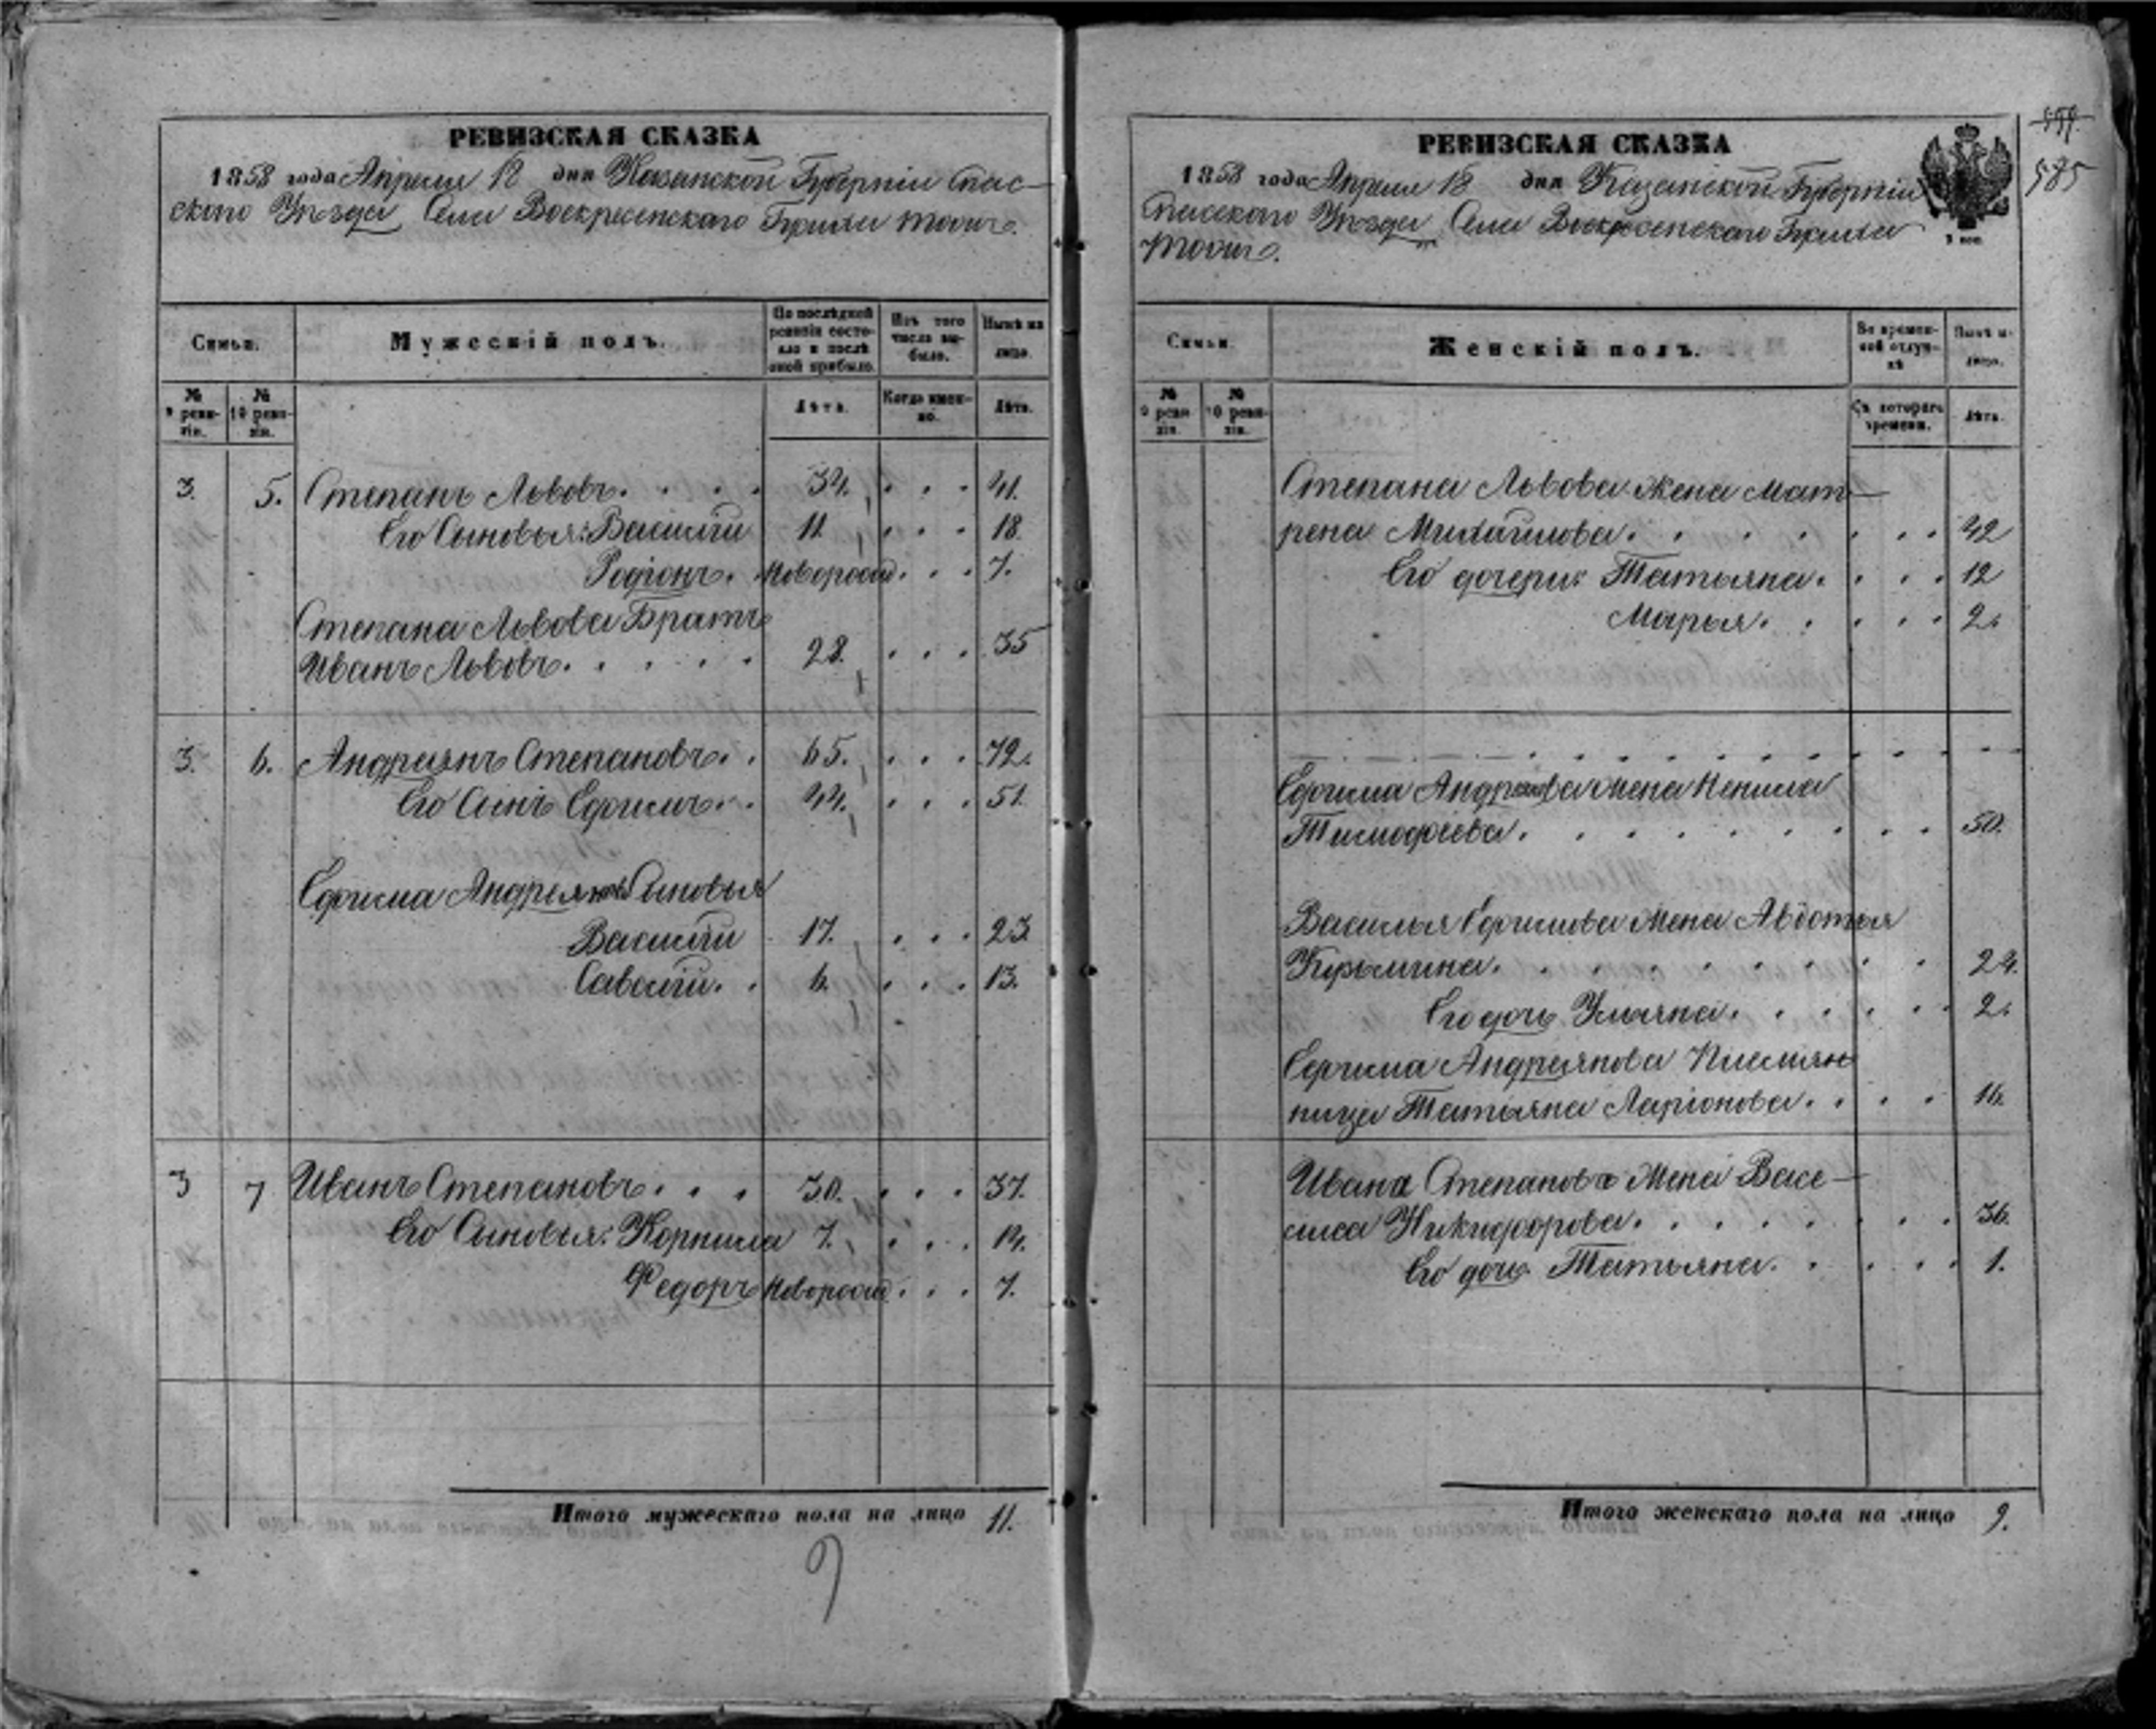 РЕВИЗСКАЯ СКАЗКА
1858 года Апреля 18 дня Казанской Губерніи Спас-
скаго Уѣзда Села Воскресенскаго Бряхла тожъ.
Семьи.
Мужескій полъ.
По послѣдней ревизіи состояло и послѣ оной прибыло.
Изъ того числа выбыло.
Нынѣ на лицо.
№ 9 ревизіи.
№ 10 ревизіи.
Лѣта.
Когда именно.
Лѣта.
3. 5. Степанъ Львовъ. 34. 41.
Его Сыновья: Василій 11 18.
Родіонъ. Новорожд. 7.
Степана Львова Братъ
Иванъ Львовъ. 28. 35
3. 6. Андреянъ Степановъ. 65. 72.
Его Сынъ Ефимъ. 44. 51.
Ефима Андреянова Сыновья
Василій 17. 23.
Савелій. 6. 13.
3 7 Иванъ Степановъ. 30. 37.
Его Сыновья: Корнила 7. 14.
Федоръ Новорожд. 7.
Итого мужескаго пола на лицо 11.
РЕВИЗСКАЯ СКАЗКА
585
1858 года Апреля 18 дня Казанской Губерніи
Спасскаго Уѣзда Села Воскресенскаго
тожъ.
Семьи.
Женскій полъ.
Во временной отлучкѣ
Нынѣ на лицо.
№ 9 ревизіи.
№ 10 ревизіи.
Съ котораго времени.
Лѣта.
Степана Львова Жена Мат-
рена Михайлова. 42
Его дочери: Татьяна. 12
Марья. 2.
Ефима Андреянова Жена
Тимофѣева. 50.
Василья Ефимова Жена Авдотья
Кузьмина. 24.
Его дочь Ульяна. 2.
Ефима Андреянова Племян
ница Татьяна Ларіонова. 16.
Ивана Степанова Жена Васе-
лиса Никифорова. 36.
Его дочь Татьяна. 1.
Итого женскаго пола на лицо 9.